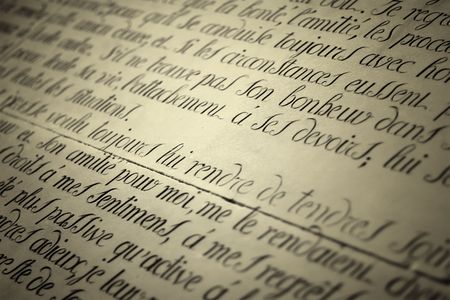 Je
que la bonté, l'amitié, les
qu'il se conduise toujours avec
et. Si les circonstances eussent
S'il ne trouve pas son bonheur dans
pour toute sa vie, l'attachement à ses devoirs; lui
les situations.
j'eusse voulu toujours lui rendre de tendres
et son amitié pour moi, me le rendaient
droits à mes sentimens, à mes
plus passive qu'active à
adieux, je leur
de